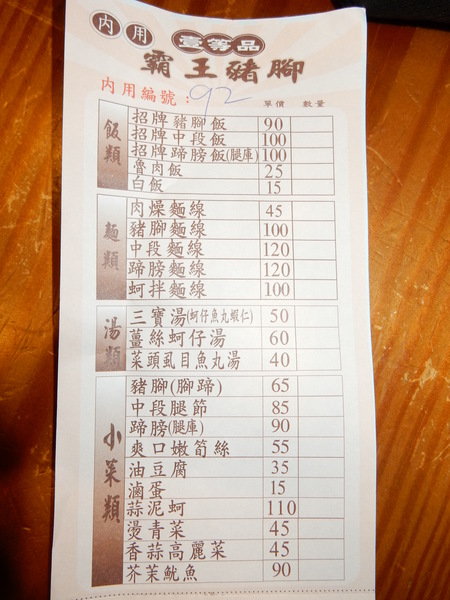 內用
壹等品
霸王豬腳
內用編號：92
單價 數量
飯類
招牌豬腳飯 90
招牌中段飯 100
招牌蹄膀飯(腿庫) 100
魯肉飯 25
白飯 15
麵類
肉燥麵線 45
豬腳麵線 100
中段麵線 120
蹄膀麵線 120
蚵拌麵線 100
湯類
三寶湯(蚵仔魚丸蝦仁) 50
薑絲蚵仔湯 60
菜頭虱目魚丸湯 40
小菜類
豬腳(腳蹄) 65
中段腿節 85
蹄膀(腿庫) 90
爽口嫩筍絲 55
油豆腐 35
滷蛋 15
蒜泥蚵 110
燙青菜 45
香蒜高麗菜 45
芥茉魷魚 90